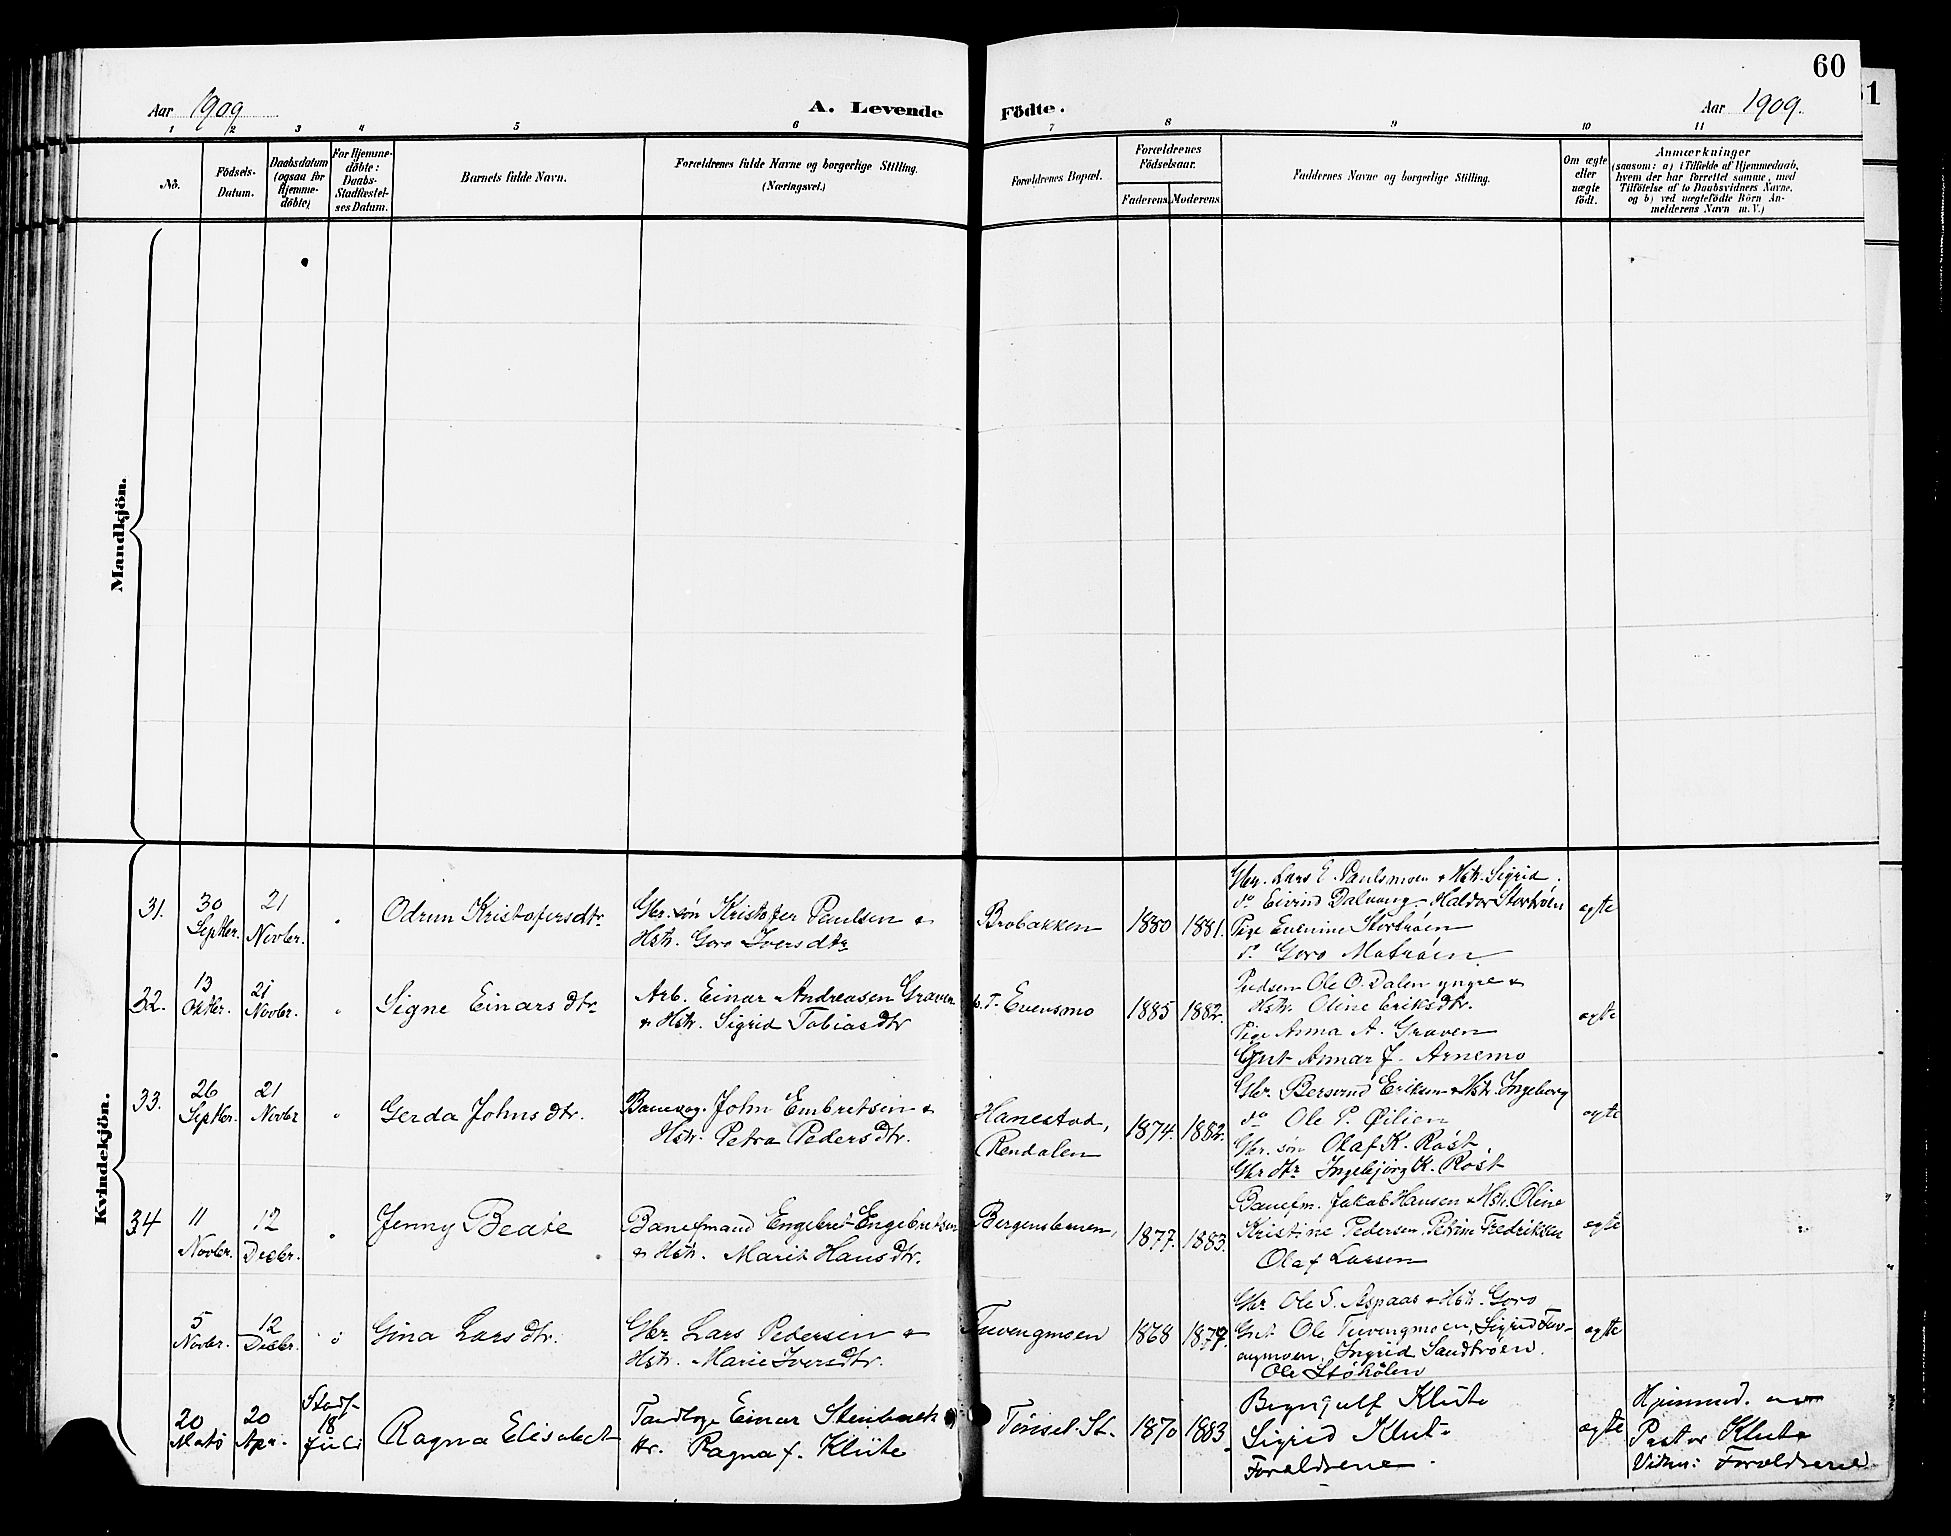 60
Aar 1909
A. Levende
Födte.
Aar 1909.
1 2 3 4 5 6 7 8 9 10 11
No.
Födsels-
Datum.
Daabsdatum
(ogsaa for
Hjemme-
döbte)
For Hjemme-
döbte:
Daabs-
Stadfæstel-
ses Datum.
Barnets fulde Navn.
Forældrenes fulde Navne og borgerlige Stilling.
(Næringsvei.)
Forældrenes Bopæl.
Forældrenes
Födselsaar.
Faderens
Moderens
Faddernes Navne og borgerlige Stilling.
Om ægte
eller
uægte
födt.
Anmærkninger
(saasom: a) i Tilfælde af Hjemmedaab,
hvem der har forrettet samme, med
Tilföielse af to Daabsvidners Navne,
og b) ved uægtefödte Börn An-
melderens Navn m. V.)
Mandkjön.
Kvindekjön.
31.
30
Septbr.
21
Novbr.
Odrun Kristofersdtr.
Gbr. søn Kristofer Paulsen &
Hstr. Goro Iversdtr
Brobakken
1880
1881.
Gbr. Lars E. Paulsmoen & Hstr. Sigrid.
do Eivind Dalvang Haldor Stortrøen
Pige Evenine Stortrøen
do Goro Motrøen
ægte
32.
13
Oktbr.
21
Novbr.
Signe Einarsdtr.
Arb. Einar Andreasen Graven
& Hstr. Sigrid Tobiasdtr
p. T. Evensmo
1885
1882.
Ole O. Dalen yngre &
Hstr. Oline Eriksdtr.
Pige Anna A. Graven
Gut Annar J. Arnemo
ægte
33.
26
Septbr.
21
Novbr
Gerda Johnsdtr.
Banevog. John Embretsen &
Hstr. Petra Pedersdtr.
Hanestad,
Rendalen
1874.
1882.
Gbr. Bersvend Eriksen & Hstr. Ingeborg
do Ole P. Øilien
Gbr. søn Olaf K. Røst
Gbr dtr Ingebjørg K. Røst
ægte
34
11
Novbr.
12
Decbr.
Jenny Beate
Baneformand Engebret Engebretsen
& Hstr. Marit Hansdtr.
1877.
1883.
Banefm. Jakob Hansen & Hstr. Oline
Kristine Pedersen, Petrine Fredriksen
Olaf Larsen
ægte
5
Novbr.
12
Decbr.
Gina Larsdtr.
Gbr Lars Pedersen &
Hstr. Marie Iversdtr.
Tuvengmoen
1868
1877.
Gbr Ole S. Aspaas & Hstr. Goro
Gut Ole Tuvengmoen, Sigrid Tuv-
engmoen, Ingrid Sandtrøen.
Ole
ægte
20
Mats
20
Apr.
Stadf.
18
juli
Ragna Elisabet
Tandlæge Einar Steinbach
Hr. Ragna f. Klüte
Tønset St.
1870
1883
Klüte
Sigrid Klüte
Forældrene.
ægte
Hjemmed. av
Pastor Klüte
Vidner: Forældrene